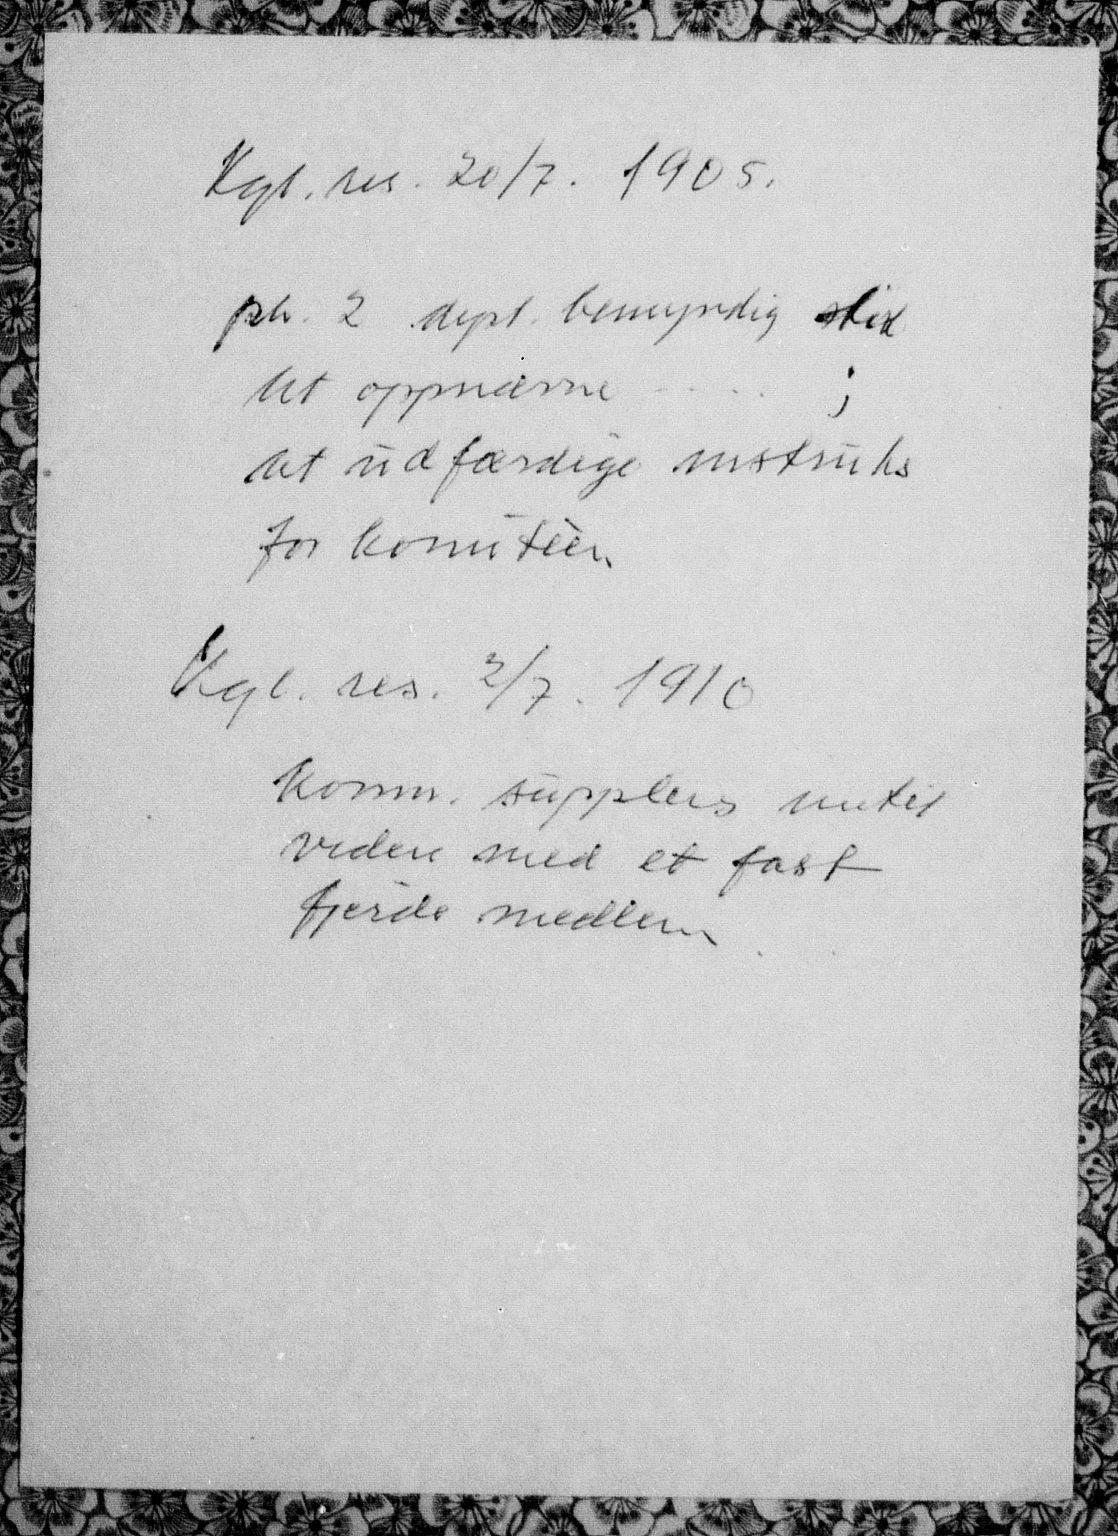 Kgl. res. 20/7. 1905.
pkt. 2 dept. bemyndig
at oppnævne - .... ;
at udfærdige instruks
for komitéen
Kgl. res. 2/7. 1910
Komm. suppleres intil
videre med et fast
fjerde medlem.